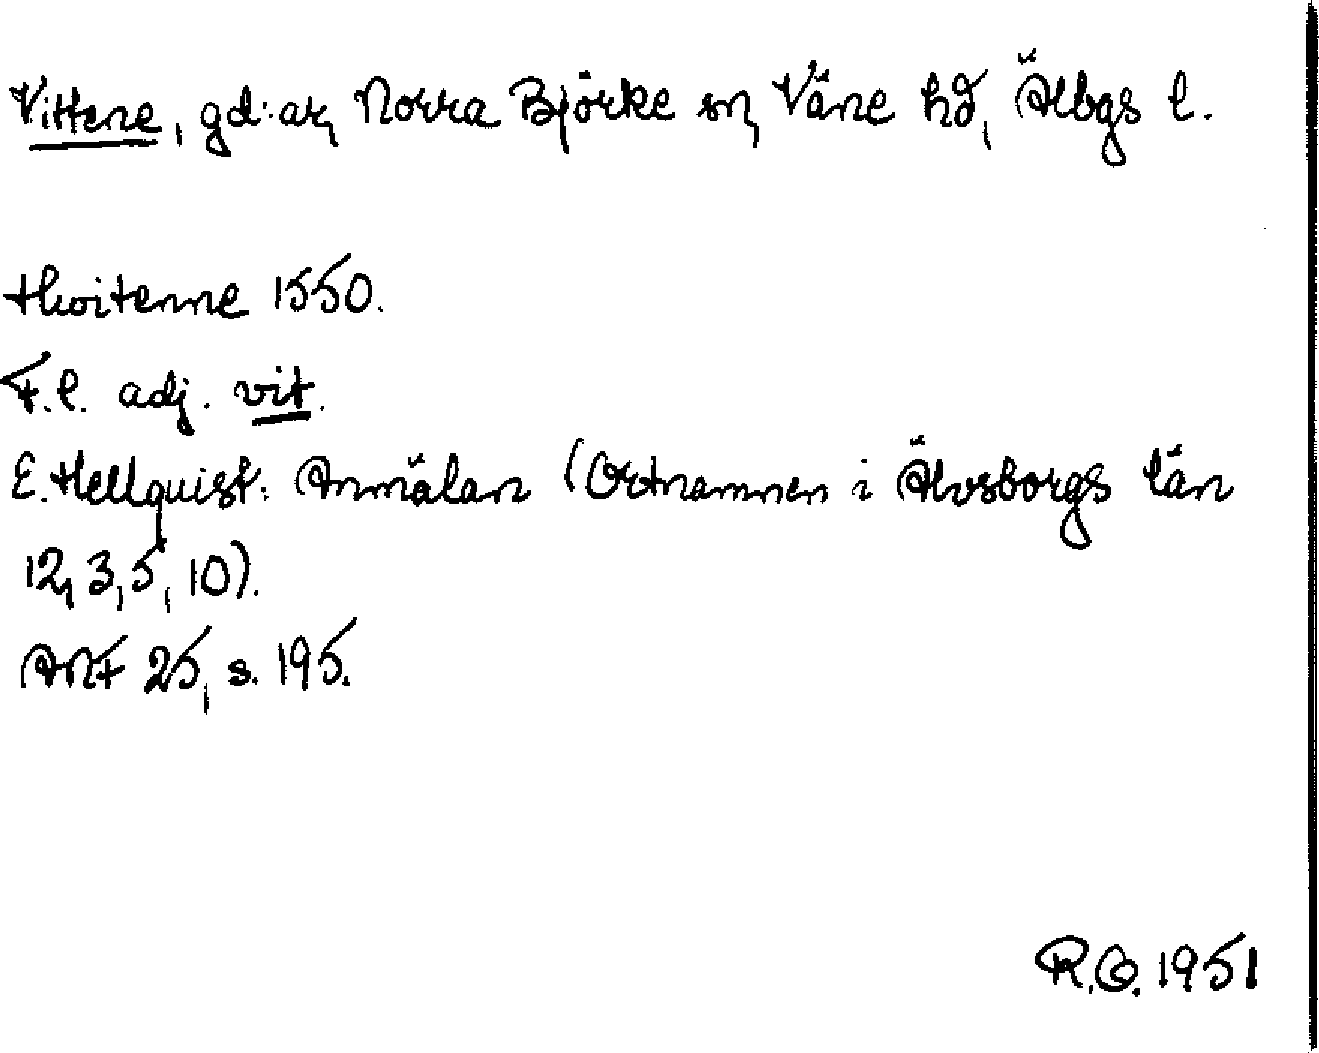 Vittene, gd:ar, Norra Björke sn, Väne hd, Älbgs l.
Hwitenne 1550.
F.l. adj. vit.
E. Hellquist: Anmälan (Ortnamnen i Älvsborgs län
12, 3, 5, 10).
ANF 25, s. 195.
R.O. 1951